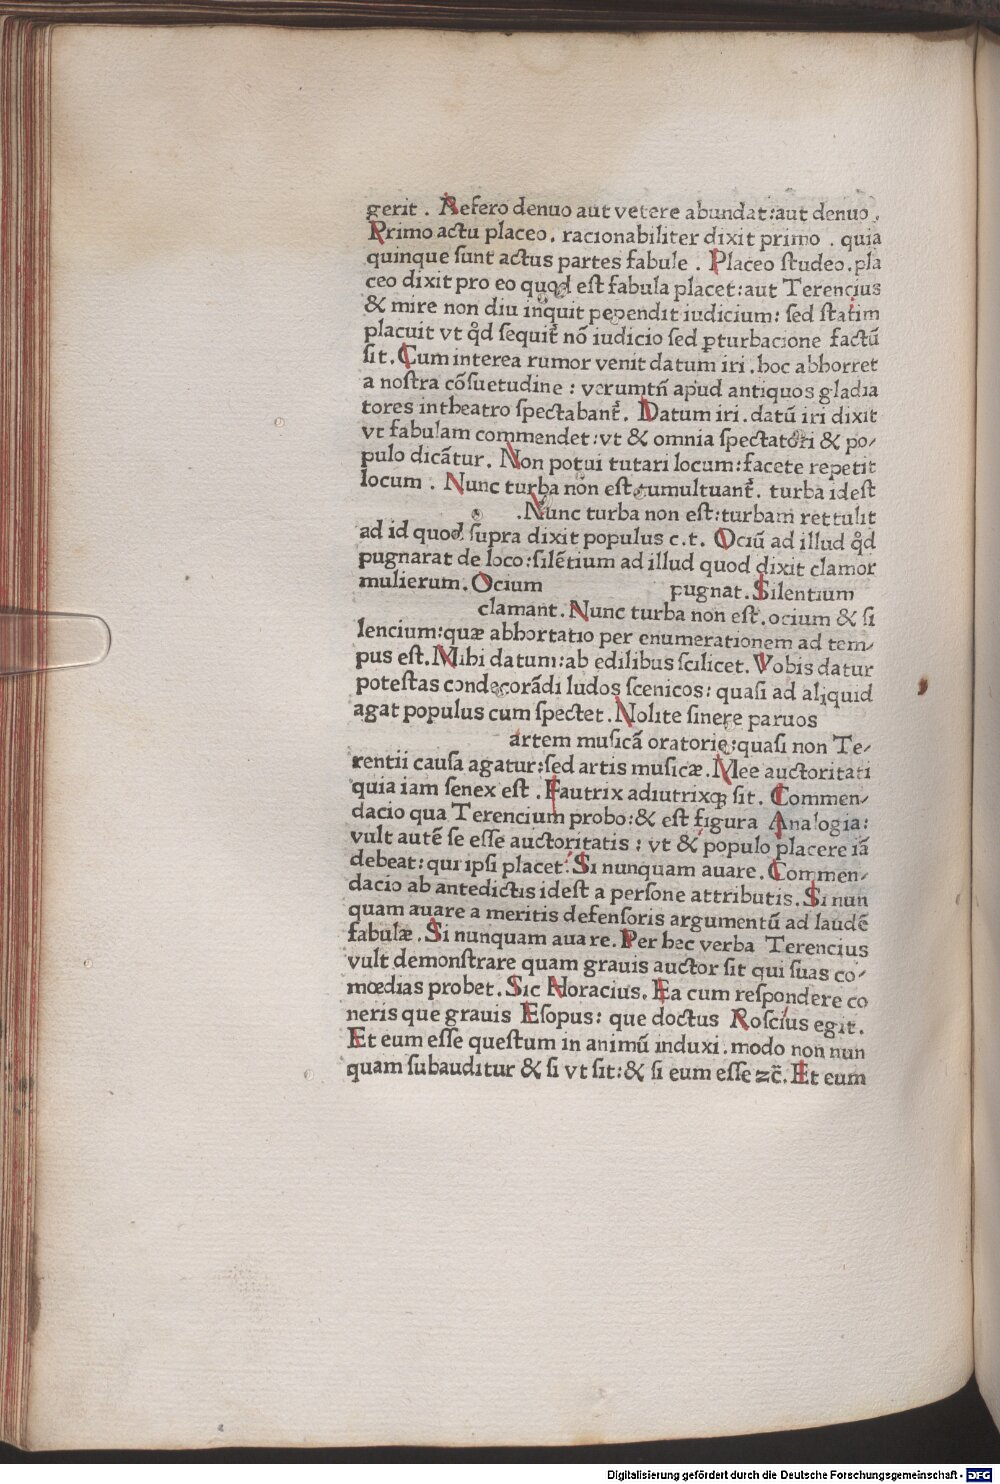 gerit . Refero denuo aut vetere abundat:aut denuo .
Primo actu placeo. racionabiliter dixit primo . quia
quinque ſunt actus partes fabule . Placeo ſtudeo.pla
ceo dixit pro eo quod eſt fabula placet:aut Terencius
& mire non diu inquit pependit iudicium: ſed ſtatim
placuit vt qd̄ ſequit᷑ nō iudicio ſed ꝑturbacione factū
ſit. Cum interea rumor venit datum iri .hoc abhorret
a noſtra cōſuetudine : verumtn̄ apud antiquos gladia
tores in theatro ſpectabant᷑. Datum iri .datū iri dixit
vt fabulam commendet:vt & omnia ſpectatori & po⸗
pulo dicātur. Non potui tutari locum:facete repetit
locum . Nunc turba non eſt tumultuant᷑. turba ideſt
.Nunc turba non eſt:turbam rettulit
ad id quod ſupra dixit populus c.t. Ociū ad illud qd̄
pugnarat de loco:ſilētium ad illud quod dixit clamor
mulierum. Ocium pugnat. Silentium
clamant. Nunc turba non eſt.ocium & ſi
lencium:quæ abhortatio per enumerationem ad tem⸗
pus eſt. Mihi datum:ab edilibus ſcilicet. Vobis datur
poteſtas condecorādi ludos ſcenicos: quaſi ad aliquid
agat populus cum ſpectet. Nolite ſinere paruos
artem muſicā oratorie:quaſi non Te⸗
rentii cauſa agatur:ſed artis muſicæ. Mee auctoritati
quia iam ſenex eſt . Fautrix adiutrixqꝫ ſit. Commen⸗
dacio qua Terencium probo:& eſt figura Analogia:
vult autē ſe eſſe auctoritatis : vt & populo placere iā
debeat: qui ipſi placet. Si nunquam auare. Commen⸗
dacio ab antedictis ideſt a perſone attributis. Si nun
quam auare a meritis defenſoris argumentū ad laudē
fabulæ . Si nunquam auare. Per hec verba Terencius
vult demonſtrare quam grauis auctor ſit qui ſuas co⸗
mœdias probet. Sic Horacius. Ea cum reſpondere co
neris que grauis Eſopus: que doctus Roſcius egit.
Et eum eſſe queſtum in animū induxi .modo non nun
quam ſubauditur & ſi vt ſit:& ſi eum eſſe ⁊c̄. Et eum
Digitalisierung gefördert durch die Deutsche Forschungsgemeinschaft - DFG